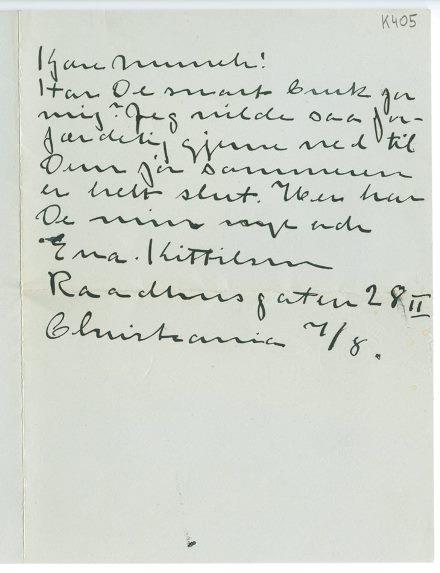 K405
Kjære Munch!
Har De snart bruk for
mig? Jeg vilde saa for-
færdelig gjerne ned til
Dem før sommeren
er helt slut. Her har
De min nye adr
Ena. Kittilsen
Raadhusgaten 28 II
Christiania 7/8.